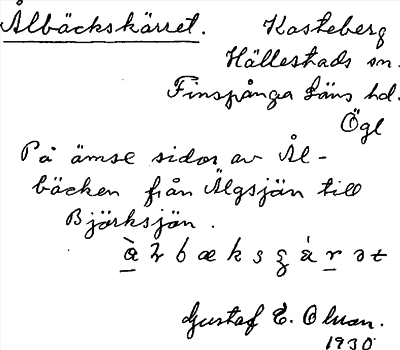 Ålbäckskärret. Kasteberg
Hällestads sn.
Finspånga läns hd.
Ögl
På ömse sidor av Ål-
bäcken från Älgsjön till
Björksjön.
Gustaf E. Olsson.
1930